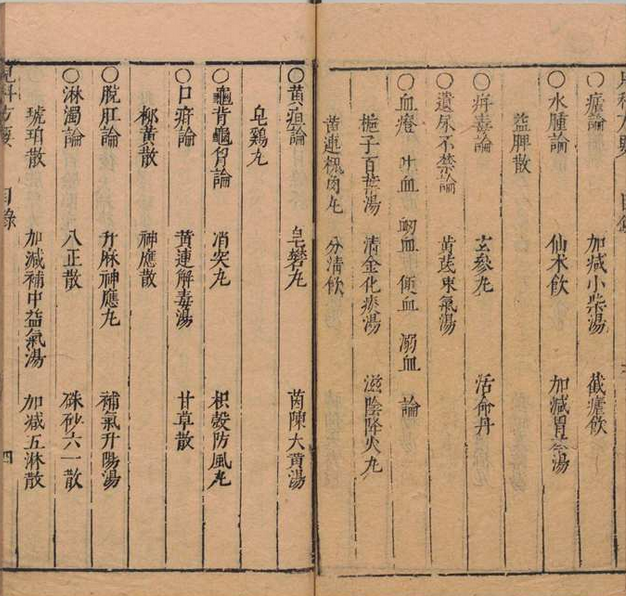 ○瘧論 加減小柴湯 截瘧飲
○水腫論 仙术飲 加減胃苓湯
益脾散
○痧毒論 玄參丸 活命丹
○遺尿不禁論 黃芪束氣湯
○血證 吐血 衂血 便血 溺血 論
梔子百葉湯 清金化痰湯 滋陰降火丸
黃連 肉丸 分清飲
○黃疸論 皂礬丸 茵陳大黃湯
皂鷄丸
○龜背龜胷論 消突丸 枳殼防風丸
○口瘡論 黃連解毒湯 甘草散
柳黃散 神應散
○脫肛論 升麻神應丸 補氣升陽湯
○淋濁論 八正散 硃砂六一散
琥珀散 加減補中益氣湯 加減五淋散
目錄 四